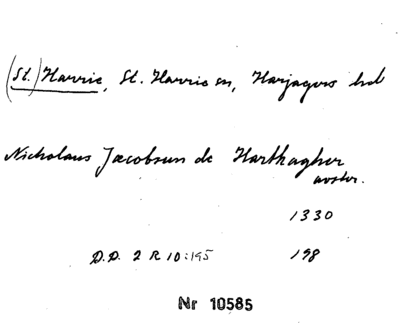 (St.) Harrie, St. Harrie sn, Harjagers hd
Nicholaus Jacobsun de Harthagher
avskr.
1330
D.D. 2 R 10:195 198
Nr 10585